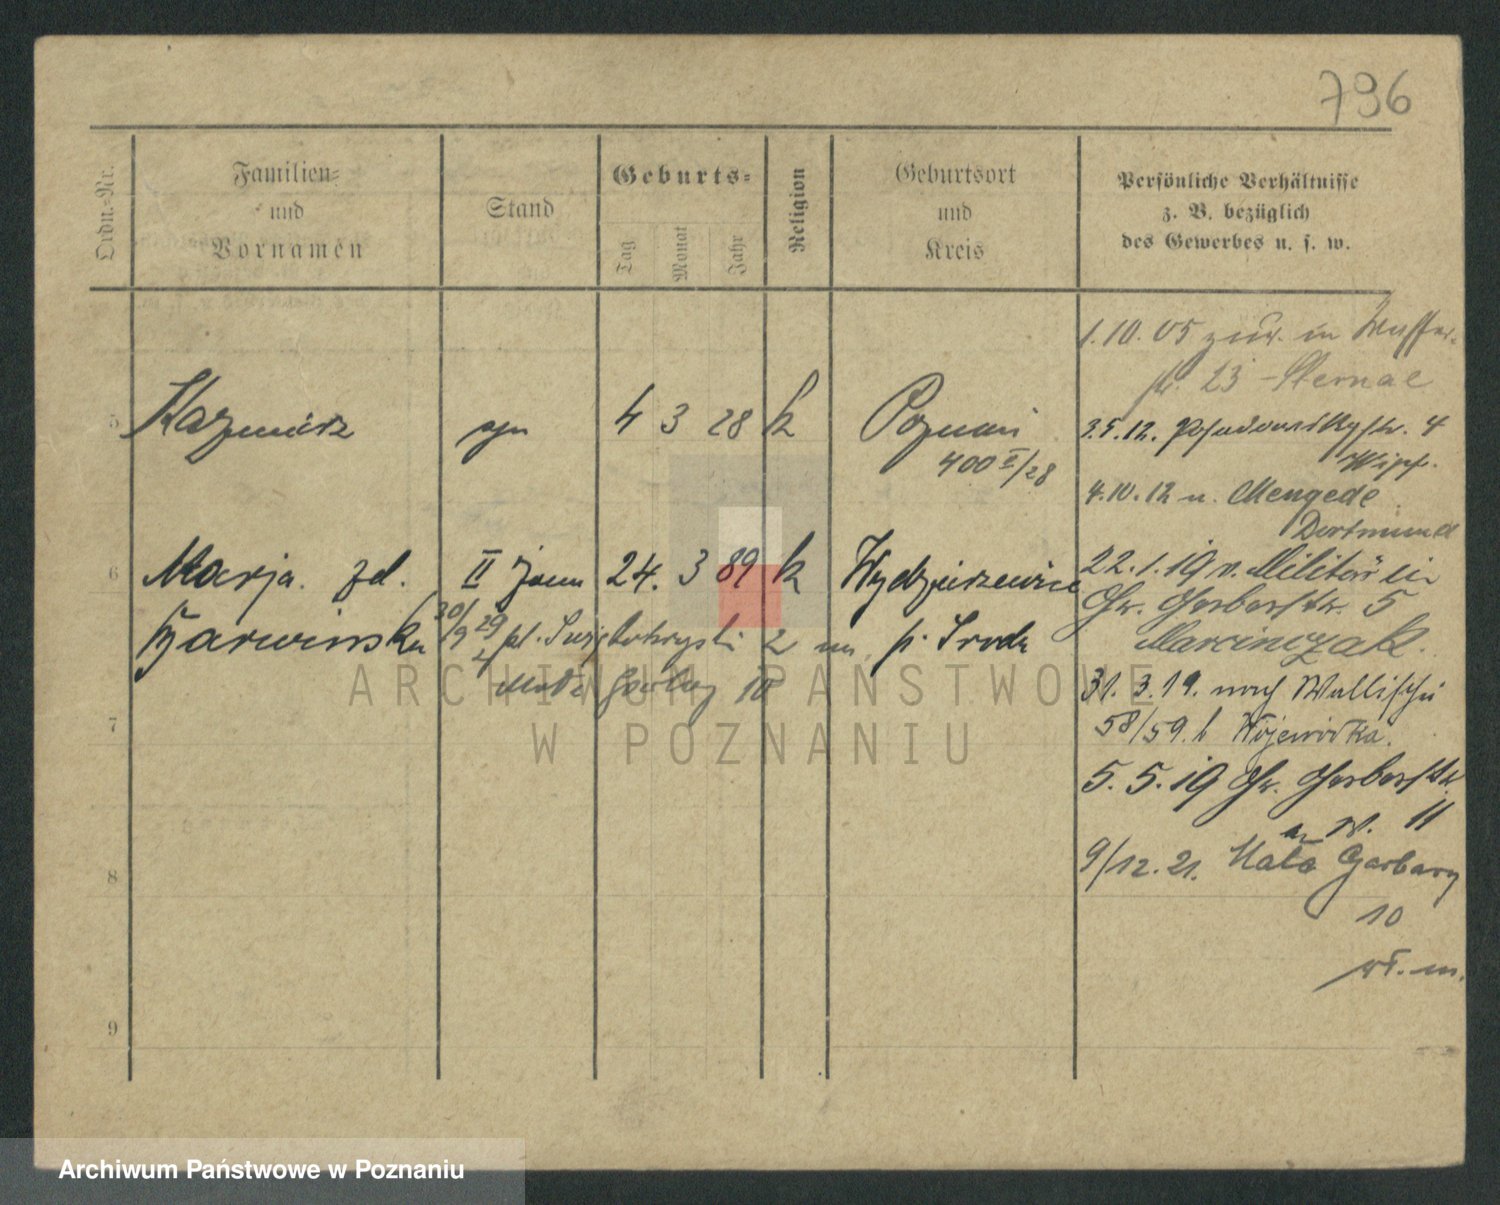 796
Ordn.-Nr.
Familien-
und
Vornamen
Stand
Geburts-
Tag
Monat
Jahr
Religion
Geburtsort
und
Kreis
Persönliche Verhältnisse
z. B. bezüglich
des Gewerbes u. s. w.
1.10.05 zur. in
23
5 Kazimierz syn 4 3 28 k Poznań
400 II/28
3.5.12. 4
Wipf.
4.10.12 n. Mengede
Dortmund
6 Marja zd. II żona 24. 3 89 k Wydzierzewice
Żarwinska 30/9 29 pl. Świętokrzyski 2 m p. Środa
Małe Garbary 10
22.1.19 v. Militär in
Gr. Gerberstr. 5
Marcinczak.
31.3.19. nach Wallischei
58/59. b Wojewodka.
5.5.19 Gr. Gerberstr.
W. 11
7
8
9/12.21. Małe Garbary
10
wł. m.
9
ARCHIWUM PAŃSTWOWE
W POZNANIU
Archiwum Państwowe w Poznaniu